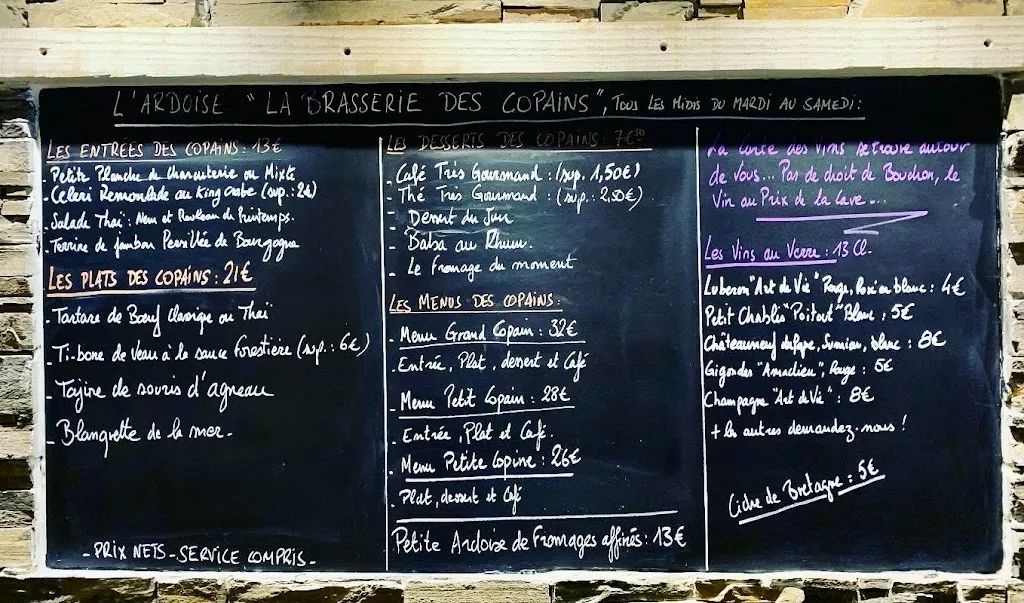 L'ARDOISE "LA BRASSERIE DES COPAINS", TOUS LES MIDIS DU MARDI AU SAMEDI:
LES ENTREES DES COPAINS: 13€
- Petite Planche de charcuterie ou Mixte
- Céleri Remoulade au King crabe (sup.: 2€)
- Salade Thaï: Nem et Rouleau de Printemps.
- Terrine de jambon Persillée de Bourgogne
LES PLATS DES COPAINS: 21€
- Tartare de Bœuf classique ou Thaï
- Ti-bone de Veau à la sauce forestière (sup.: 6€)
- Tajine de souris d'agneau
- Blanquette de la mer.
- PRIX NETS - SERVICE COMPRIS -
LES DESSERTS DES COPAINS: 7€50
- Café Très Gourmand: (sup. 1,50€)
- Thé Très Gourmand: (sup.: 2,50€)
- Dessert du Jour
- Baba au Rhum.
- Le fromage du moment
LES MENUS DES COPAINS:
- Menu Grand Copain: 32€
- Entrée, Plat, dessert et Café
- Menu Petit Copain: 28€
- Entrée, Plat et Café.
- Menu Petite Copine: 26€
- Plat, dessert et Café
Petite Ardoise de Fromages affinés: 13€
La Carte des Vins se trouve autour
de vous... Pas de droit de Bouchon, le
Vin au Prix de la Cave...
Les Vins au Verre: 13 Cl.
Luberon "Art de Vie" Rouge, Rosé ou blanc: 4€
Petit Chablis "Poitout" Blanc: 5€
Châteauneuf du Pape, blanc: 8€
Gigondas "Amadieu", Rouge: 5€
Champagne "Art de Vie": 8€
+ les autres demandez-nous!
Cidre de Bretagne: 5€